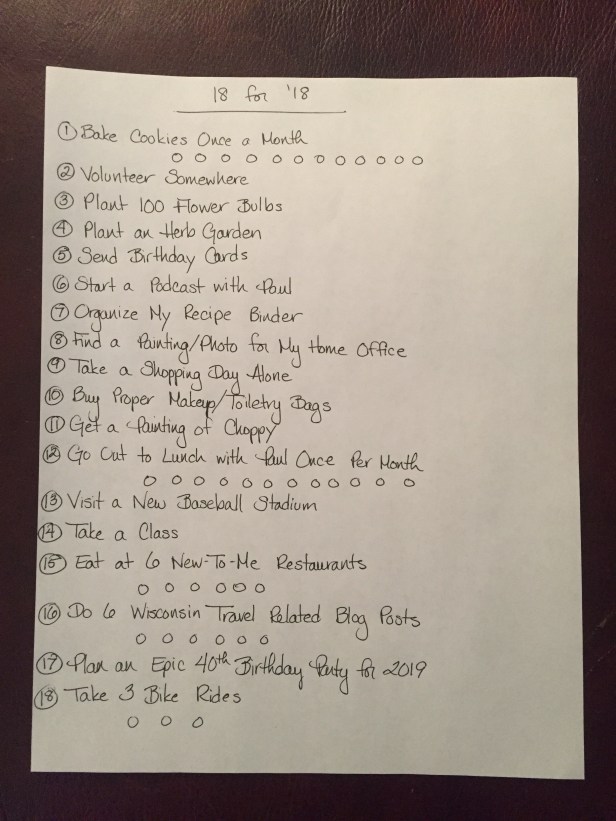 18 for '18
① Bake Cookies Once a Month
② Volunteer Somewhere
③ Plant 100 Flower Bulbs
④ Plant an Herb Garden
⑤ Send Birthday Cards
⑥ Start a Podcast with Paul
⑦ Organize My Recipe Binder
⑧ Find a Painting/Photo for My Home Office
⑨ Take a Shopping Day Alone
⑩ Buy Proper Makeup/Toiletry Bags
⑪ Get a Painting of Choppy
⑫ Go Out to Lunch with Paul Once Per Month
⑬ Visit a New Baseball Stadium
⑭ Take a Class
⑮ Eat at 6 New-To-Me Restaurants
⑯ Do 6 Wisconsin Travel Related Blog Posts
⑰ Plan an Epic 40th Birthday Party for 2019
⑱ Take 3 Bike Rides